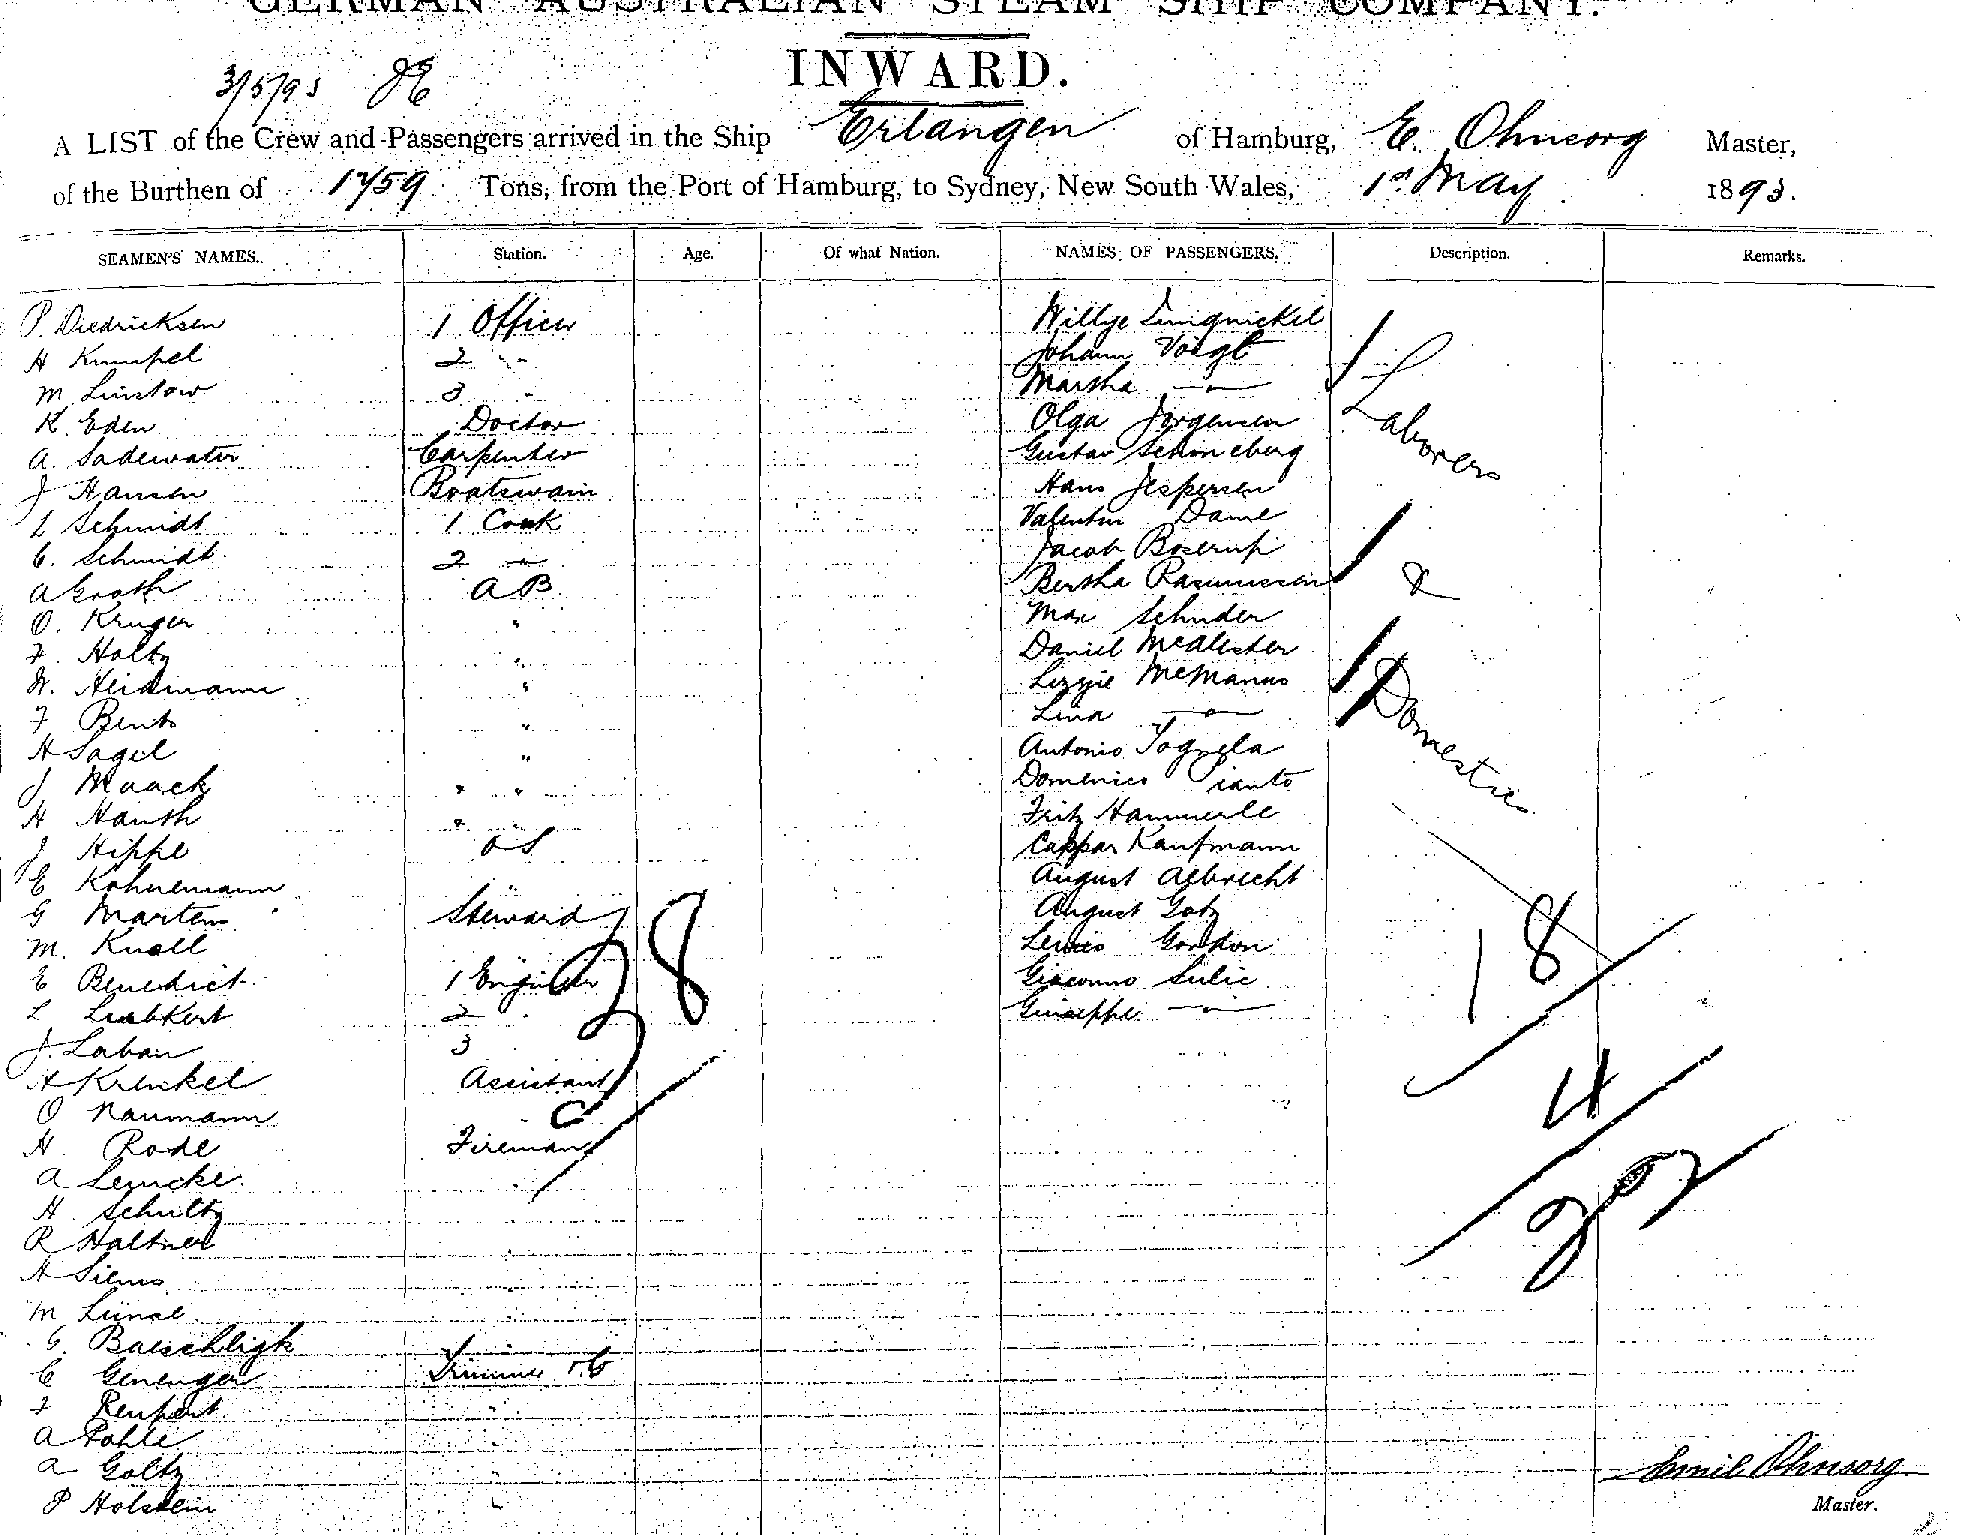 GERMAN AUSTRALIAN STEAM SHIP COMPANY.
INWARD.
3/5/93
A LIST of the Crew and Passengers arrived in the Ship Erlangen of Hamburg, E. Ohnsorg Master,
of the Burthen of 1759 Tons, from the Port of Hamburg, to Sydney, New South Wales, 1st May 1893.
SEAMEN'S NAMES. Station. Age. Of what Nation. NAMES OF PASSENGERS. Description. Remarks.
P. Diedricksen 1 Officer Willye
H Kumpel 2 " Johann Voigt
M Linstow 3 " Martha —"—
K. Eden Doctor Olga Jorgensen
A Sadewater Carpenter Gustav Schoneberg
J Hansen Boatswain Hans Jespersen
L Schmidt 1 Cook Valentin Dame
C. Schmidt 2 " Jacob Boserup
A Groth A B Bertha Rasmussen
O. Kruger " Max Schuder
F. Holtz " Daniel McAlester
W. Heidmann " Lizzie McManus
F Bents " Lina —"—
H Sagel " Antonio Tognela
J Maack " " Domenico
H Hansh " " Fritz Hammerle
J Hippe O S Caspar Kaufmann
E Kohnemann August Albrecht
G Martens Steward August Gotz
M. Knoll Lewis Gordon
E Benedict 1 Engineer Giacomo Sulic
L Liebkert 2 " Giuseppe —"—
J. Laban 3
H Krenkel Assistant
O Naumann
H Rode Fireman
A Lemcke
H Schultz
R Haltner
H Siems
M Lünse
G. Baeschligk
C Genenger Trimmer
F Renpert "
A Pohle
A Goltz
P Holstein "
Laborers
&
Domestics
38
18
4
22
Emil Ohnsorg
Master.